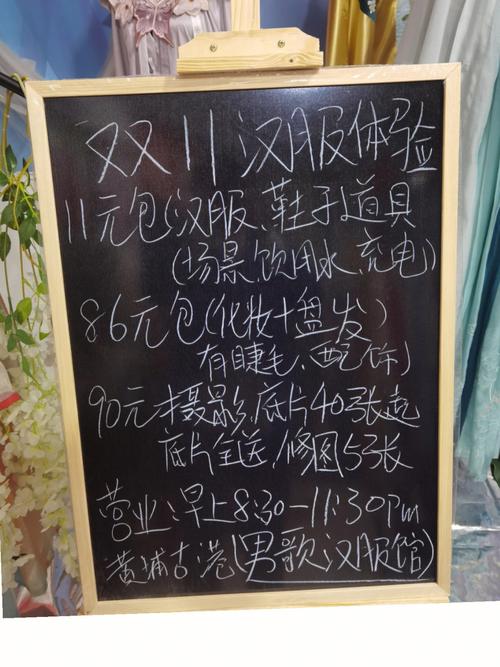 双11汉服体验
11元包(汉服、鞋子道具
(场景,饮用水、充电)
86元包(化妆+盘发)
有睫毛、配饰)
90元摄影,底片40张起
底片全送,修图5张
营业:早上8:30-11:30pm
黄埔古港(男歌汉服馆)